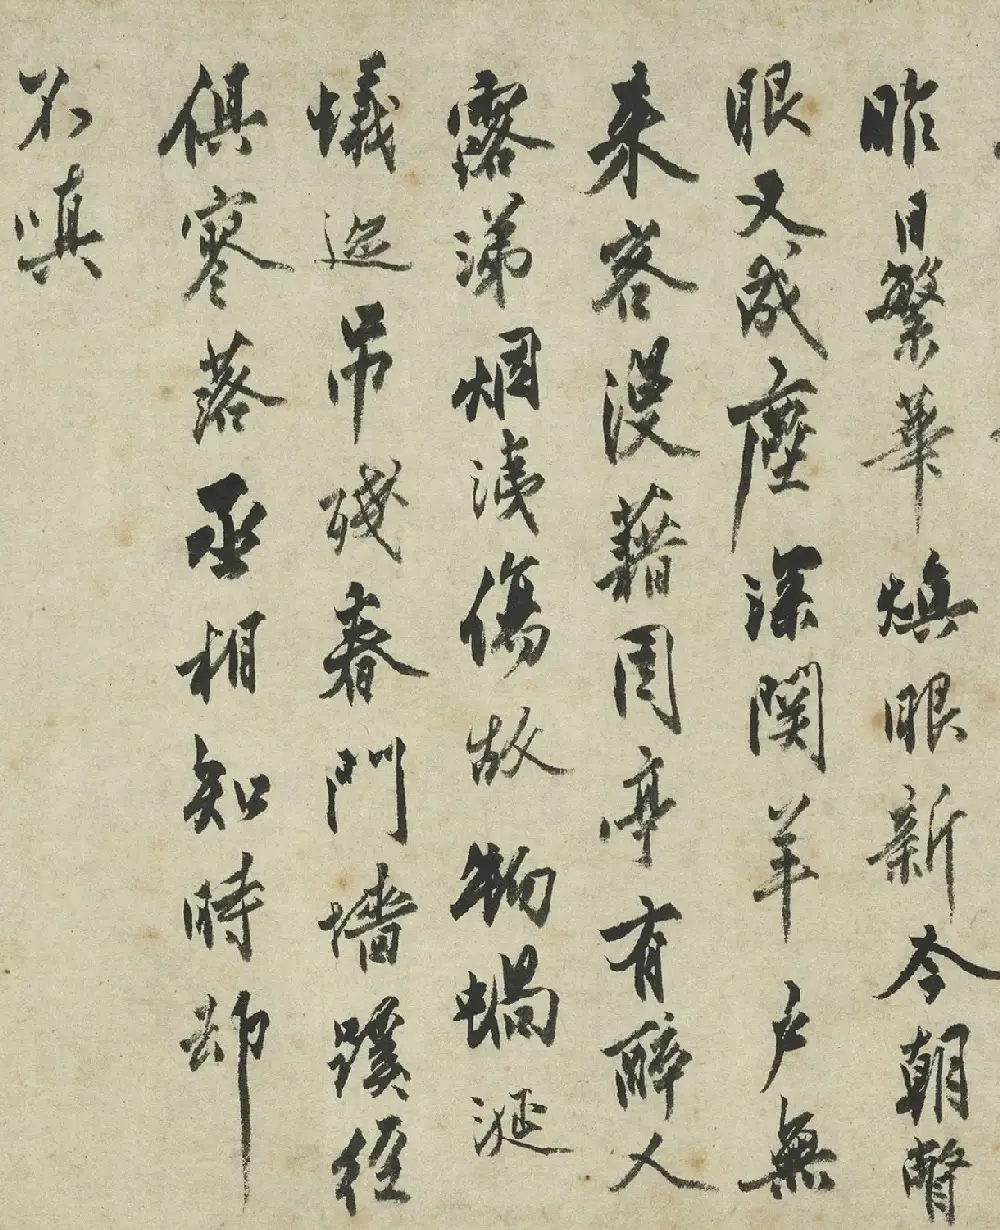 昨日繁華煥眼新今朝瞥
眼又成塵深關羊戶無
來客漫藉周亭有醉人
露涕烟洟傷故物蝸涎
蟻迹弔殘春門墻蹊徑
俱寥落丞相知時却
不嗔